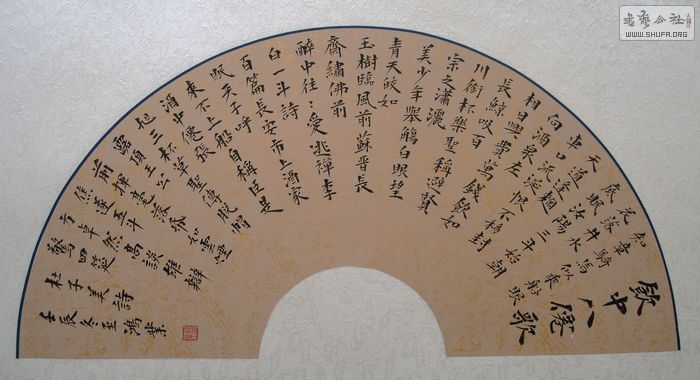 飲中八僊歌
知章騎馬似乘船眼
花落井水
底眠汝陽三斗始朝
天道逢麴
車口流涎恨不移封
向酒泉左
相日興費萬錢飲如
長鯨吸百
川銜杯樂聖稱避賢
宗之瀟灑
美少年舉觴白眼望
青天皎如
玉樹臨風前蘇晉長
齋繡佛前
醉中往々愛逃禪李
白一斗詩
百篇長安市上酒家
眠天子呼
來不上船自稱臣是
酒中僊張
旭三杯草聖傳脫帽
露頂王公
前揮毫落紙如雲煙
焦遂五斗
方卓然高談雄辯
驚四筵
杜子美詩
壬辰冬至鴻業
書藝公社
WWW.SHUFA.ORG